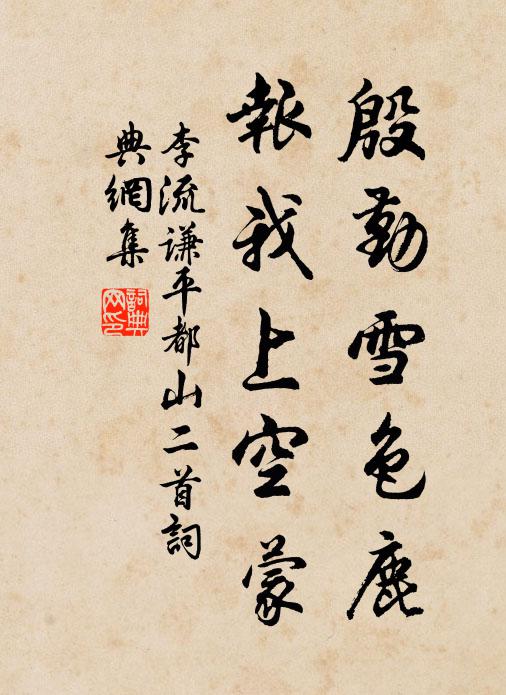 殷勤雪色鹿
報我上空蒙
李流謙平都山二首詞
典網集
詞典
网印